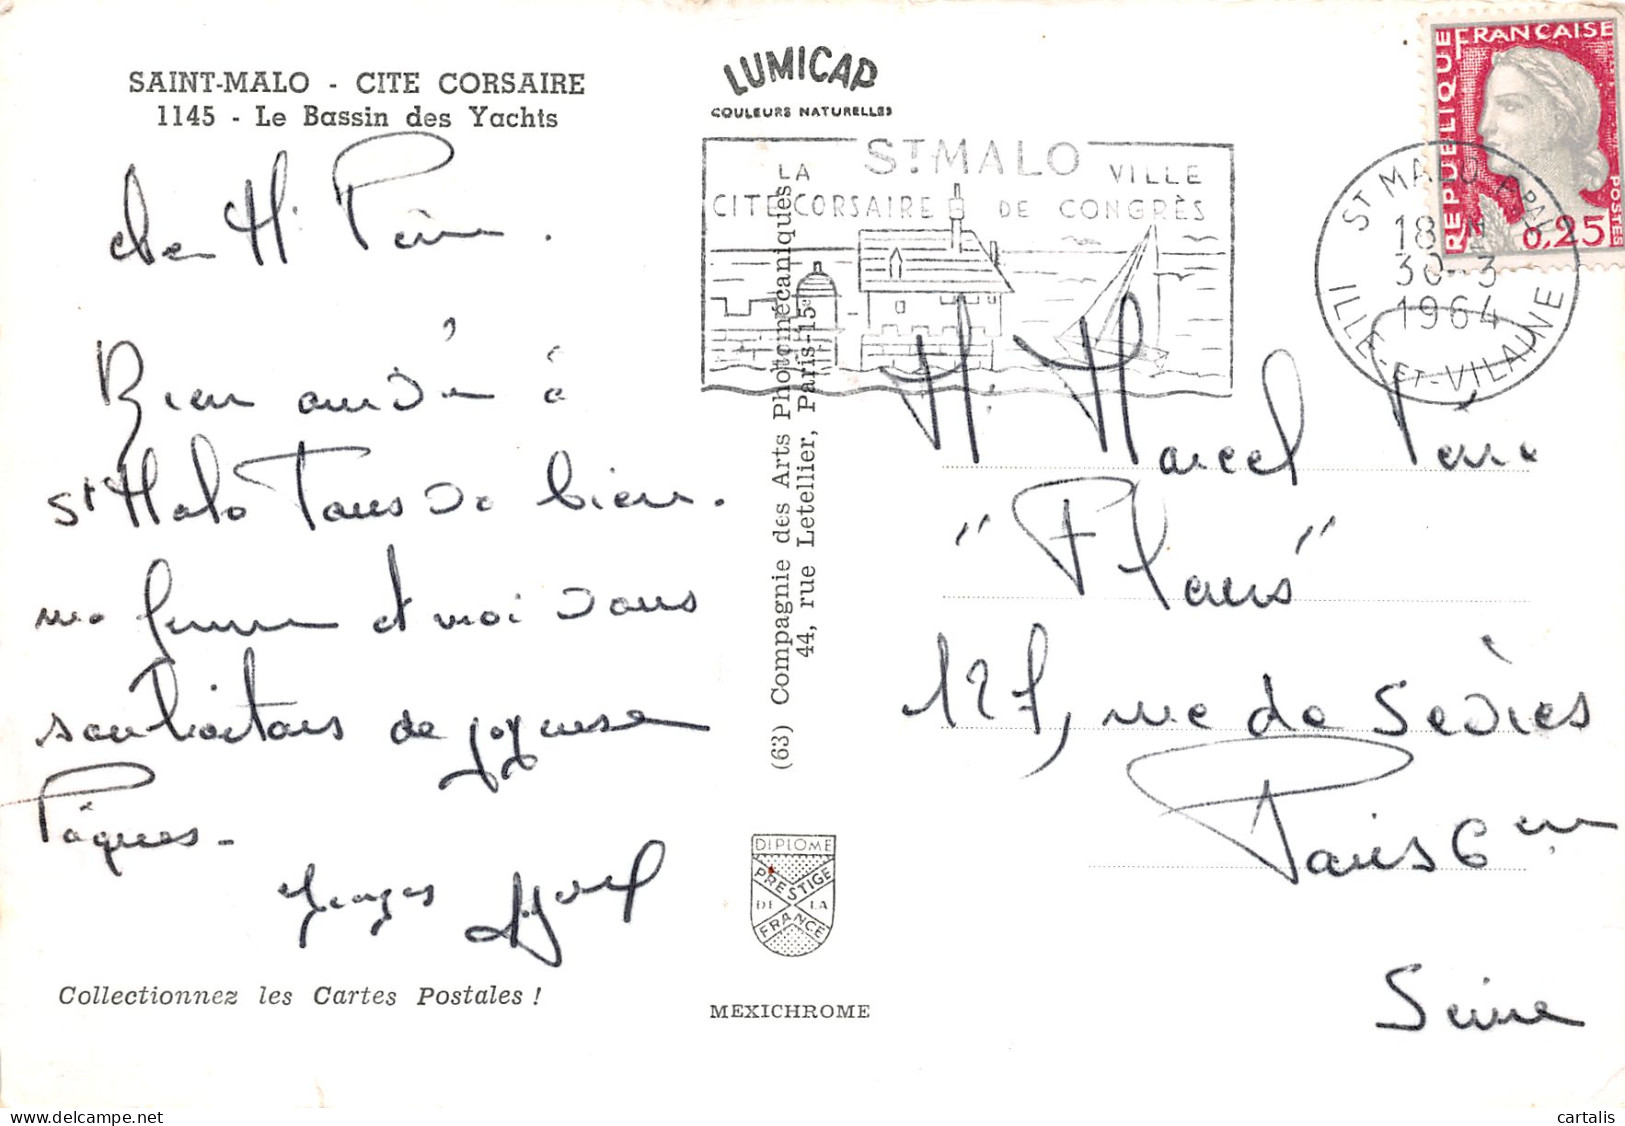 SAINT-MALO - CITE CORSAIRE
1145 - Le Bassin des Yachts
cher M. Péru.
Bien arrivé à
St Malo Tous va bien.
ma femme et moi vous
souhaitons de joyeuse
Pâques -
Georges
Collectionnez les Cartes Postales !
LUMICAP
COULEURS NATURELLES
ST MALO
LA CITE CORSAIRE
VILLE DE CONGRÈS
(63) Compagnie des Arts Photomécaniques
44, rue Letellier, Paris-15e
DIPLOME
PRESTIGE
DE LA
FRANCE
MEXICHROME
REPUBLIQUE FRANCAISE
POSTES
0,25
ST MALO PPAL
18 H
30-3
1964
ILLE-ET-VILAINE
M. Marcel Péru
"Flaus"
127, rue de Sèvres
Paris 6em
Seine
cartalis